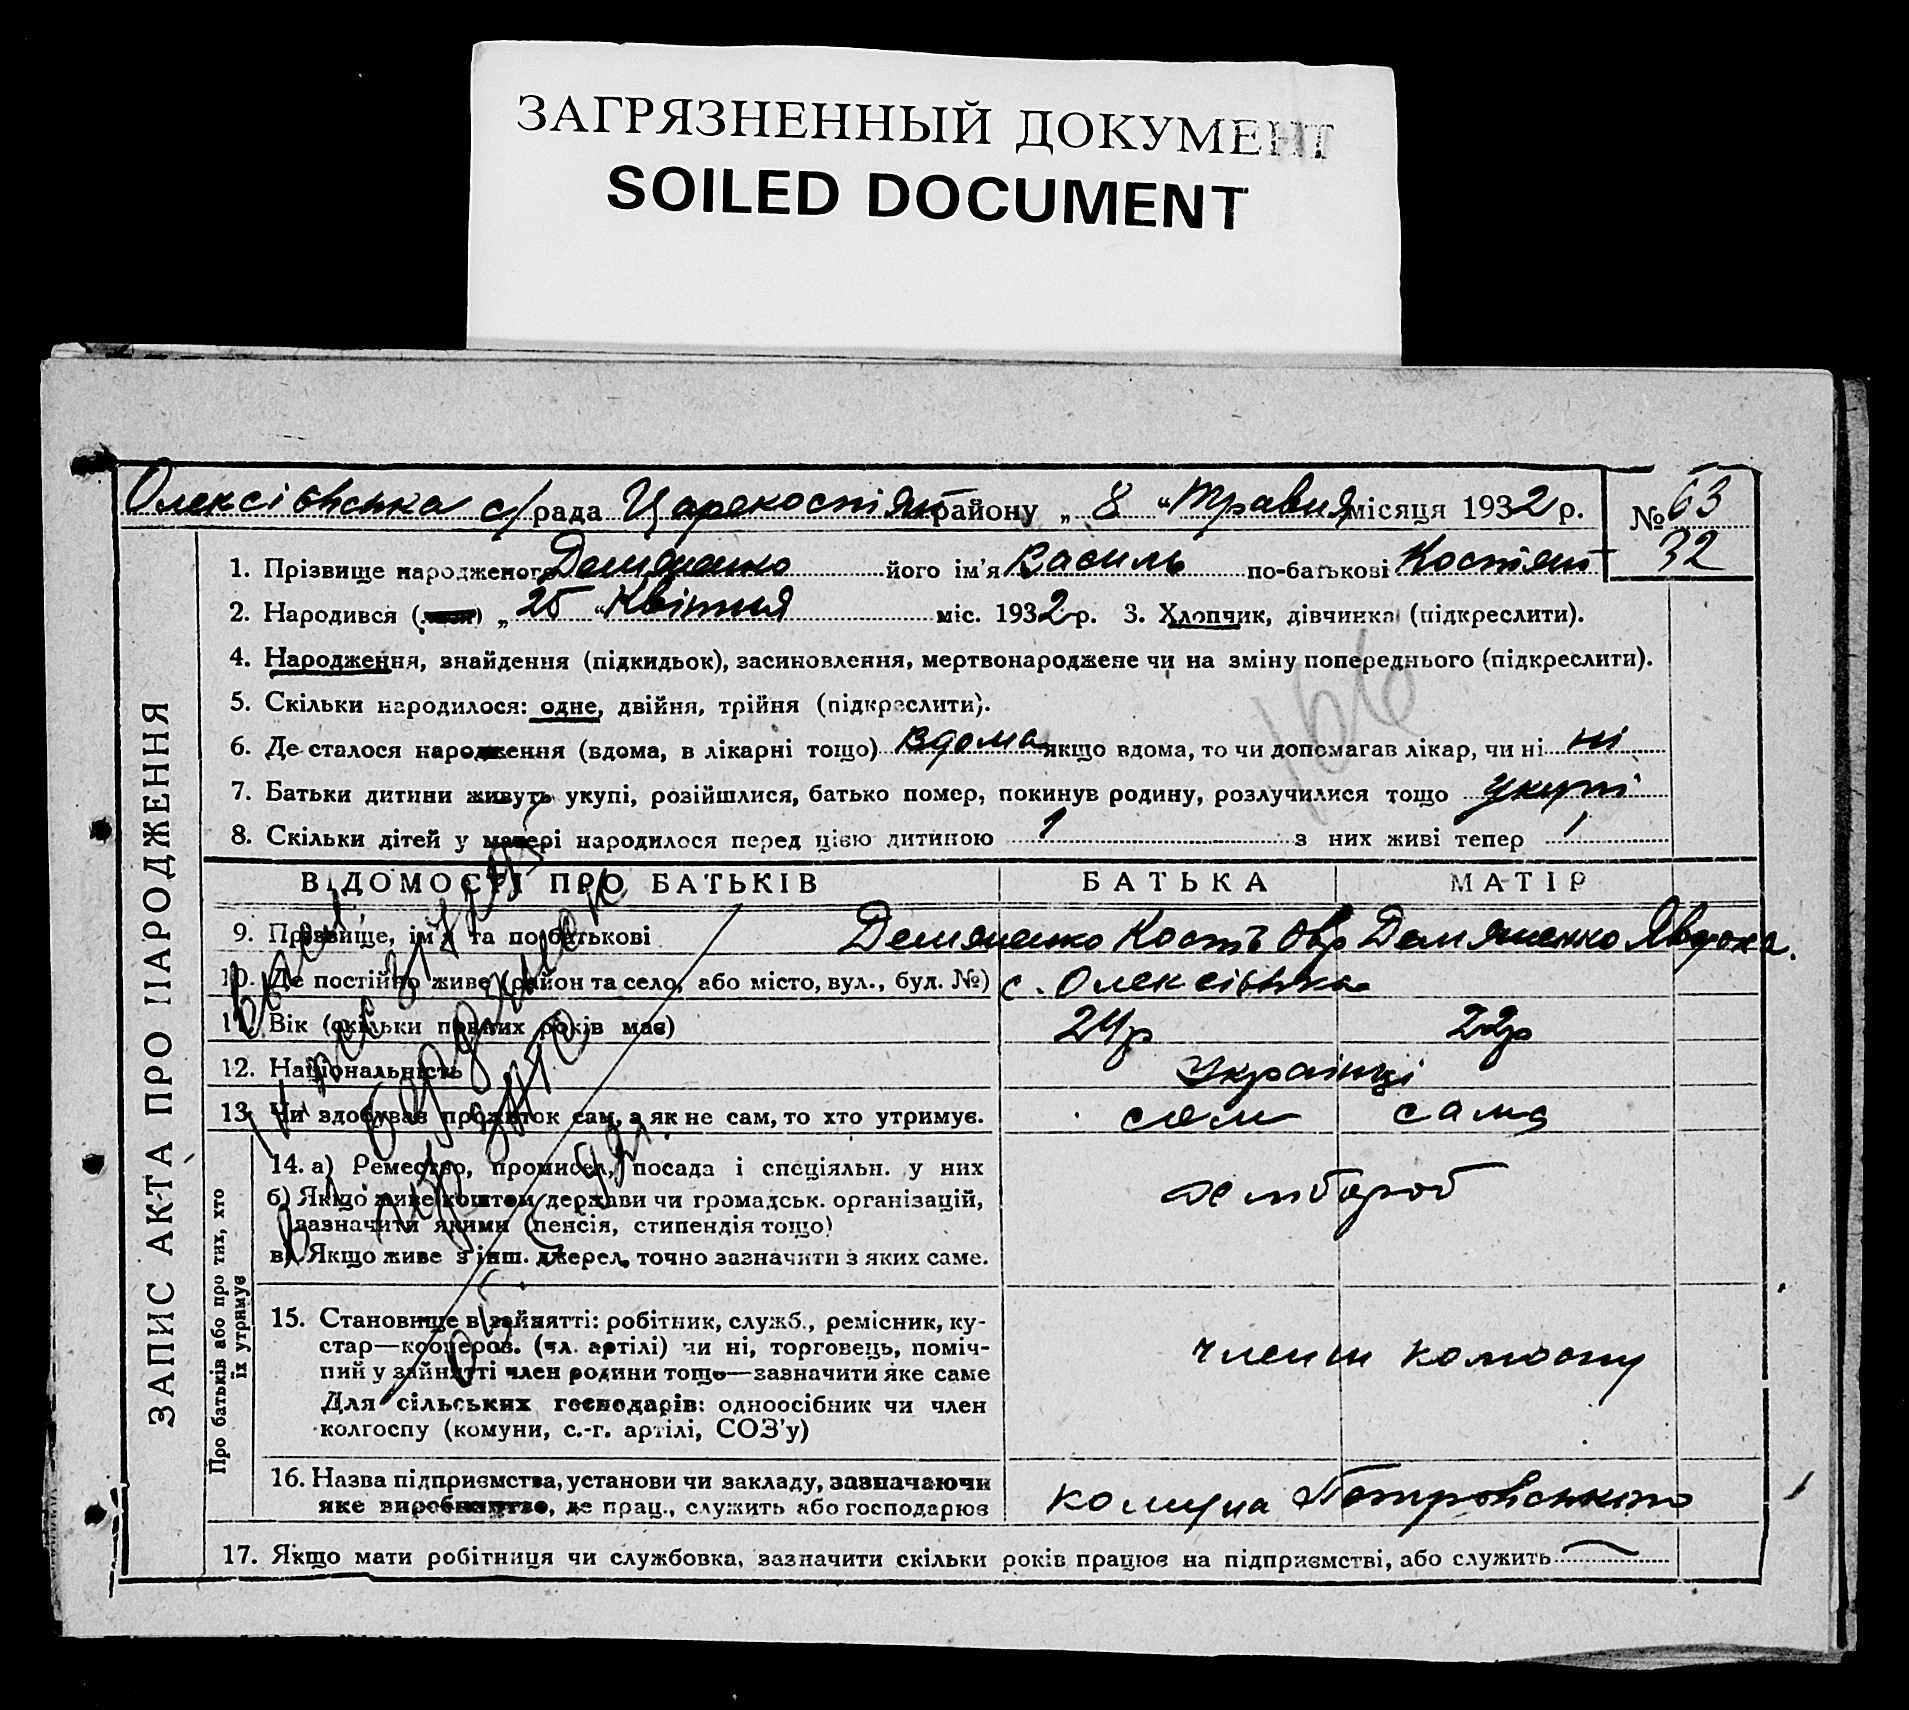 ЗАГРЯЗНЕННЫЙ ДОКУМЕНТ
SOILED DOCUMENT
Олексіівська с/рада Царекостянт району „ 8 “ Травня місяця 1932 р. № 63
32
1. Прізвище народженого Демяненко його ім'я Василь по-батькові Костянт
2. Народився ( ) „ 25 “ Квітня міс. 1932 р. 3. Хлопчик, дівчинка (підкреслити).
4. Народження, знайдення (підкидьок), засиновлення, мертвонароджене чи на зміну попереднього (підкреслити).
166
5. Скільки народилося: одне, двійня, трійня (підкреслити).
6. Де сталося народження (вдома, в лікарні тощо) вдома якщо вдома, то чи допомагав лікар, чи ні ні
7. Батьки дитини живуть укупі, розійшлися, батько помер, покинув родину, розлучилися тощо укупі
8. Скільки дітей у матері народилося перед цією дитиною 1 з них живі тепер 1
ЗАПИС АКТА ПРО НАРОДЖЕННЯ
ВІДОМОСТІ ПРО БАТЬКІВ БАТЬКА МАТІР
9. Прізвище, ім'я та по батькові Демяненко Кость Демяненко Явдоха.
10. Де постійно живе (район та село, або місто, вул., буд. №) с. Олексіівка
11. Вік (скільки повних років має) 24р 22р
12. Національність Українці
13. Чи здобував прожиток сам, а як не сам, то хто утримує. сам сама
Про батьків або про тих, хто
їх утримує
14. а) Ремество, промисел, посада і спеціяльн. у них хлібороб
б) Якщо живе коштом держави чи громадськ. організацій,
зазначити якими (пенсія, стипендія тощо)
в) Якщо живе з інш. джерел, точно зазначити з яких саме.
15. Становище в зайнятті: робітник, служб., ремісник, ку-
стар—кооперов. (чл. артілі) чи ні, торговець, поміч- члени колгоспу
ний у зайнятті член родини тощо—зазначити яке саме
Для сільських господарів: одноосібник чи член
колгоспу (комуни, с.-г. артілі, СОЗ'у)
16. Назва підприємства, установи чи закладу, зазначаючи комуна Петровського
яке виробництво, де прац., служить або господарює
17. Якщо мати робітниця чи службовка, зазначити скільки років працює на підприємстві, або служить